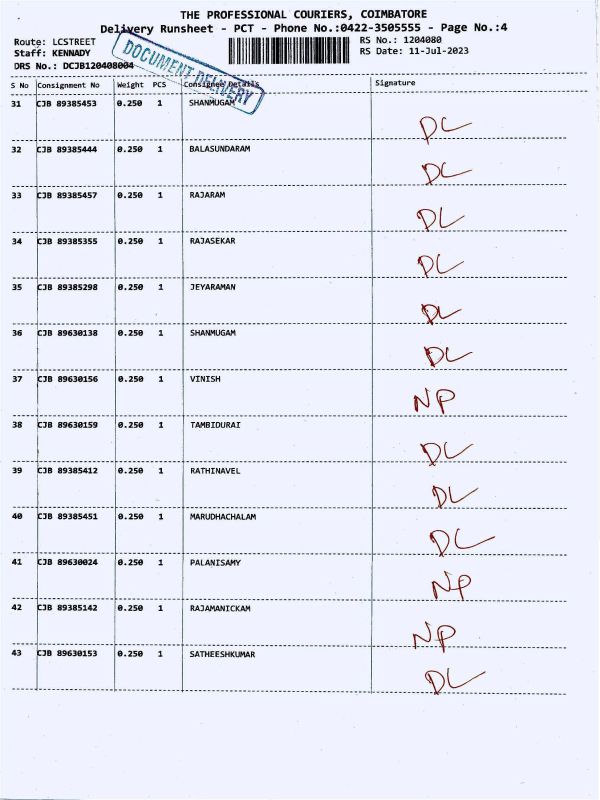 THE PROFESSIONAL COURIERS, COIMBATORE
Delivery Runsheet - PCT - Phone No.:0422-3505555 - Page No.:4
Route: LCSTREET RS No.: 1204080
Staff: KENNADY RS Date: 11-Jul-2023
DRS No.: DCJB120408004
DOCUMENT DELIVERY
S No Consignment No Weight PCS Consignee Details Signature
31 CJB 89385453 0.250 1 SHANMUGAM
DL
32 CJB 89385444 0.250 1 BALASUNDARAM
DL
33 CJB 89385457 0.250 1 RAJARAM
DL
34 CJB 89385355 0.250 1 RAJASEKAR
DL
35 CJB 89385298 0.250 1 JEYARAMAN
DL
36 CJB 89630138 0.250 1 SHANMUGAM
DL
37 CJB 89630156 0.250 1 VINISH
NP
38 CJB 89630159 0.250 1 TAMBIDURAI
DL
39 CJB 89385412 0.250 1 RATHINAVEL
DL
40 CJB 89385451 0.250 1 MARUDHACHALAM
DL
41 CJB 89630024 0.250 1 PALANISAMY
NP
42 CJB 89385142 0.250 1 RAJAMANICKAM
NP
43 CJB 89630153 0.250 1 SATHEESHKUMAR
DL